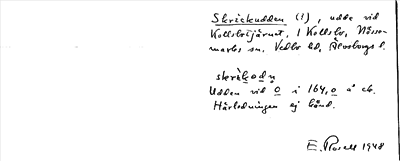 Skräckudden (!), udde vid
Kollsbotjärnet, 1 Kollsbo, Nösse-
marks sn, Vedbo hd, Älvsborgs l.
skräkodn
Udden vid o i 164,0 å ek.
Härledningen ej känd.
E. Rosell 1948